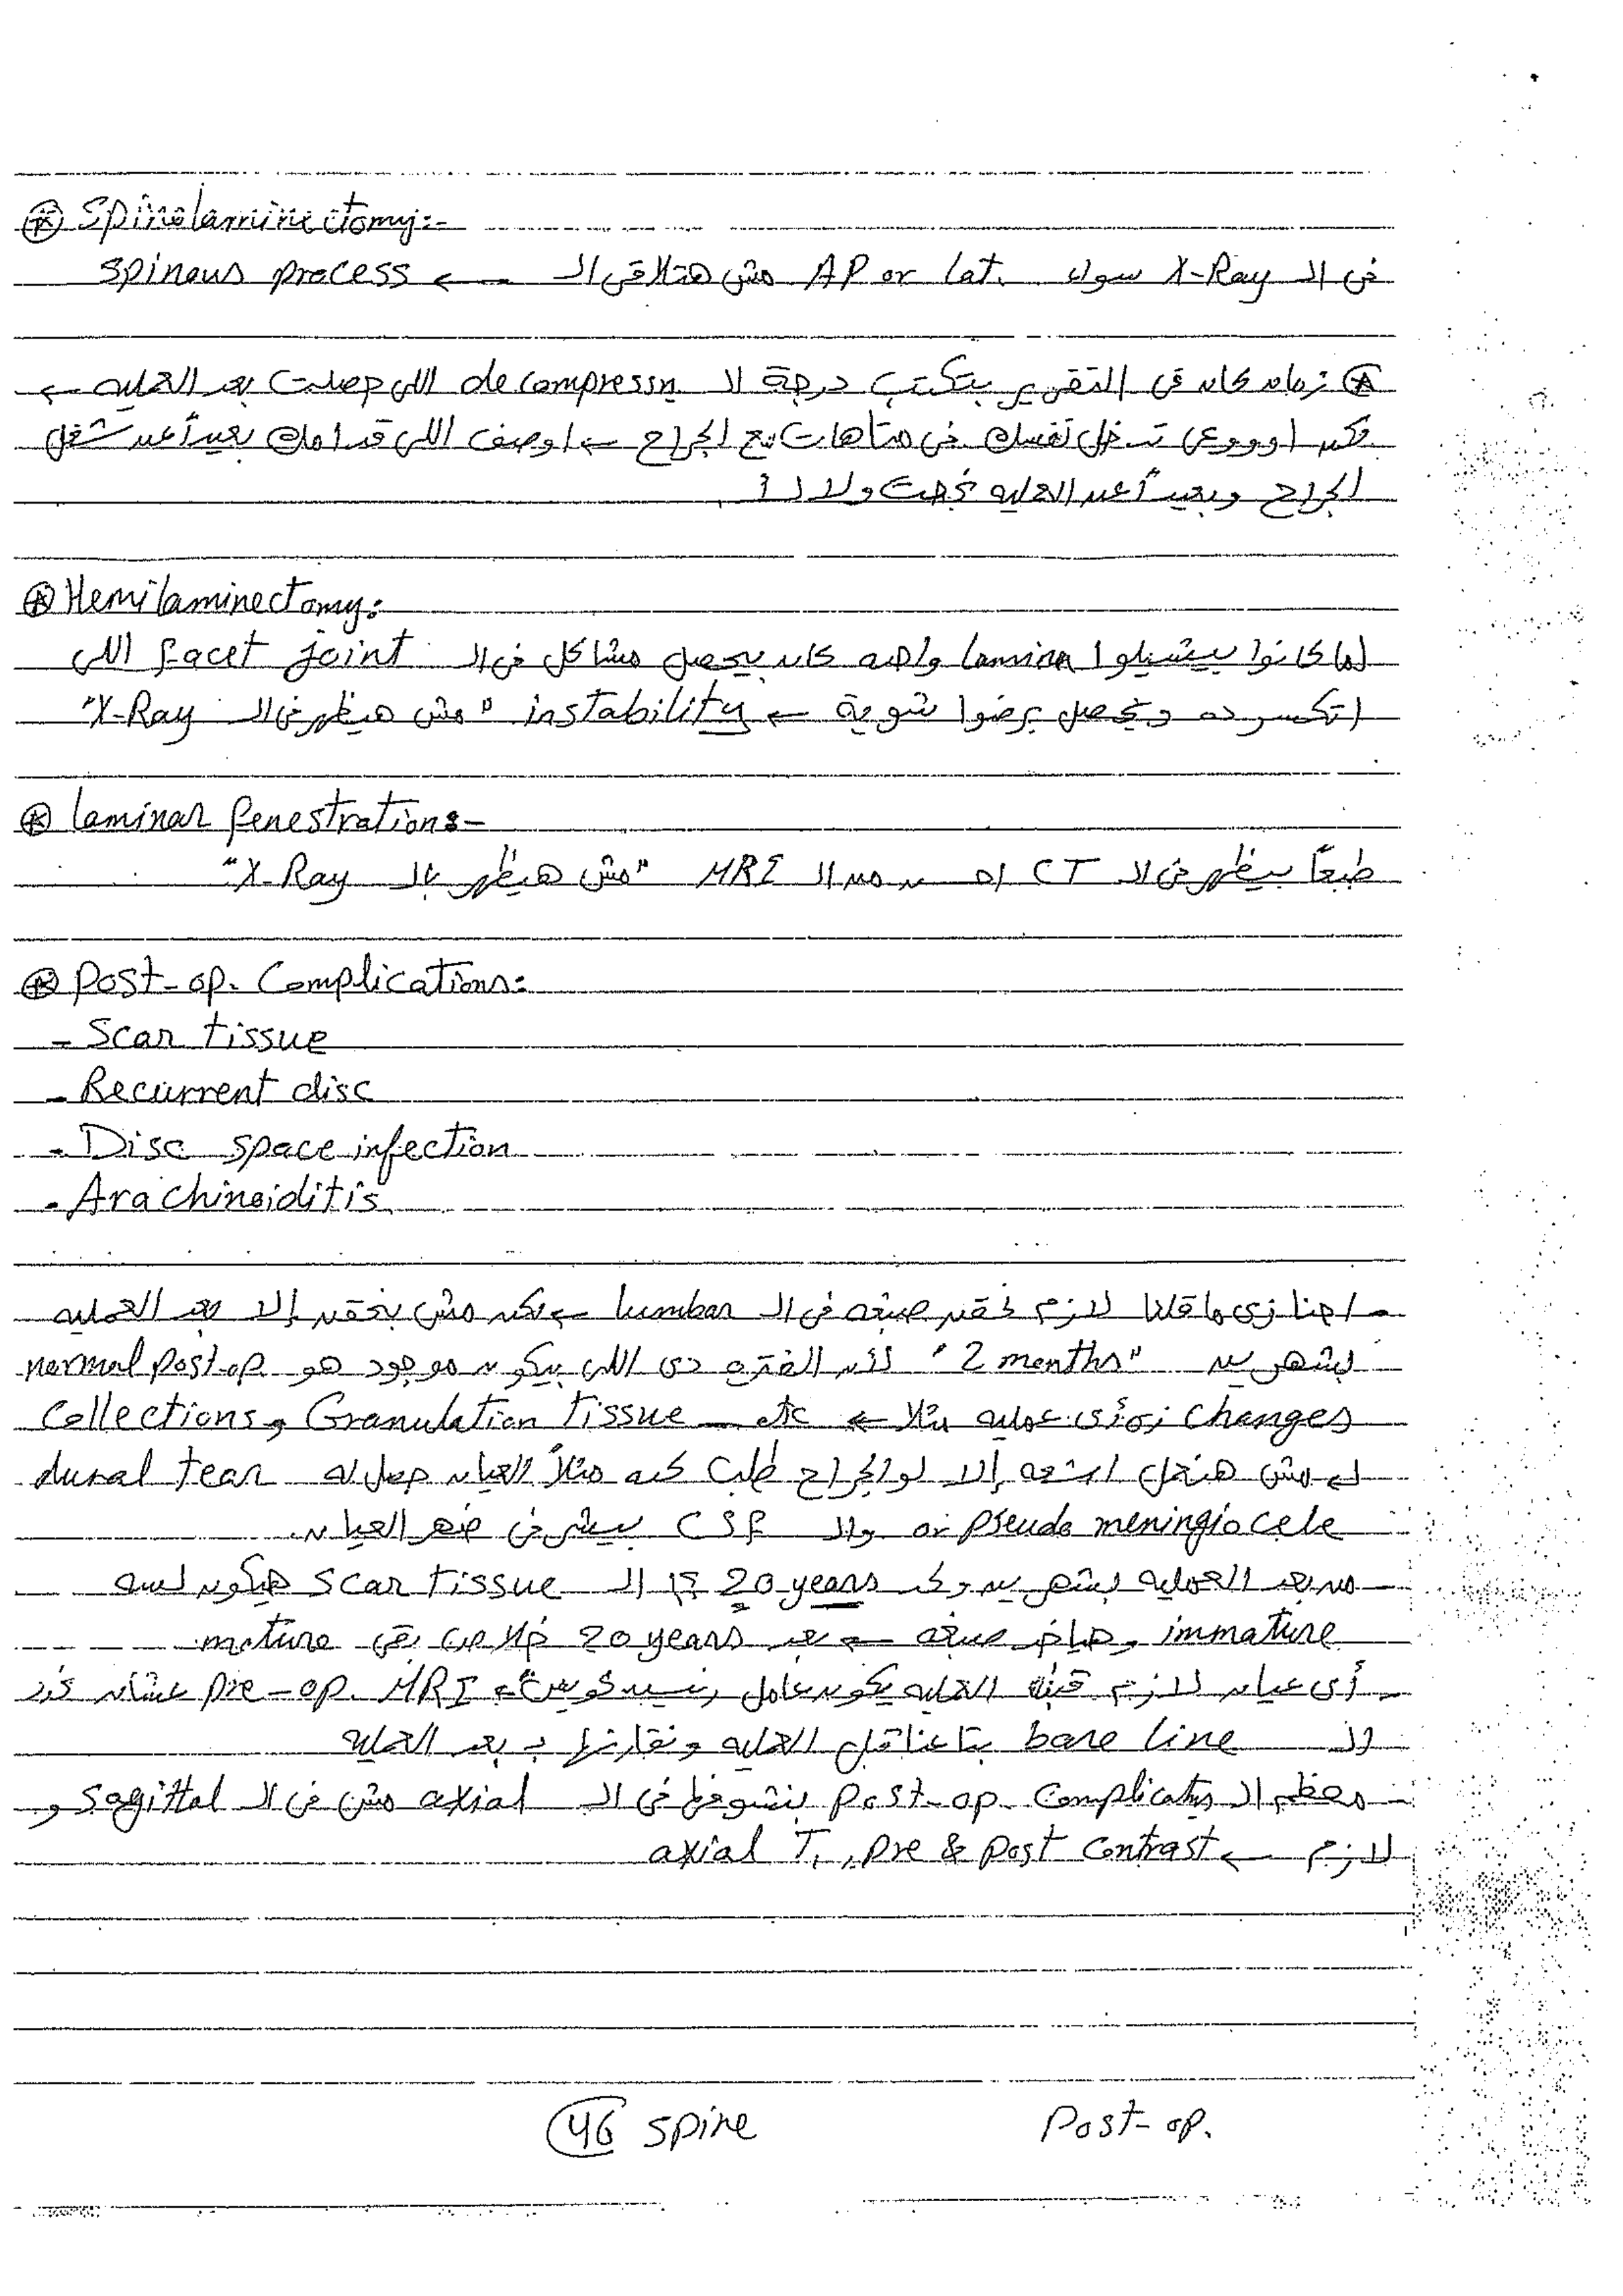 ⊛ Spinolaminectomy:-
فى الـ X-Ray سواء AP or lat. مش هتلاقى الـ ← spinous process
⊛ زمان كان فى التقرير بيتكتب درجة الـ decompressn اللى حصلت بعد العمليه ←
لكن اوووعى تدخل نفسك فى متاهات مع الجراح ← اوصف اللى قدامك بعيداً عن شغل
الجراح وبعيداً عن العمليه نجحت ولا لا؟
⊛ Hemilaminectomy:
لما كانوا بيشيلوا lamina واحده كان بيحصل مشاكل فى الـ facet joint اللى
اتكسر ده ويحصل برضوا شوية ← instability "مش هيظهر فى الـ X-Ray"
⊛ laminar fenestrations-
طبعاً بيظهر فى الـ CT من الـ MRI "مش هيظهر بالـ X-Ray"
⊛ Post-op. Complications:
- Scar tissue
- Recurrent disc
- Disc space infection
- Arachinoiditis
- احنا زى ما قلنا لازم نحقن صبغه فى الـ lumbar ← لكن مش بنحقن إلا بعد العمليه
بشهرين "2 months" لأن الفتره دى اللى بيكون موجود هو normal post-op
changes زى أى عمليه مثلا ← Collections, Granulation tissue — etc
مش هندخل اشعه إلا لو الجراح طلب كده مثلاً العيان حصل له dural tear
or pseudo meningiocele والـ CSF بيشر فى ضهر العيان.
- من بعد العمليه بشهرين وحتى 20 years الـ Scar tissue هيكون لسه
immature وهياخد صبغه ← بعد 20 years خلاص بقى mature
- أى عيان لازم قبل العمليه يكون عامل رنين كويس pre-op. MRI عشان نحدد
الـ bare line بتاعنا قبل العمليه ونقارنها بـ بعد العمليه
- معظم الـ post-op. Complicatns بنشوفها فى الـ axial مش فى الـ sagittal و
لازم ← axial T1, pre & post contrast
46 spine
Post-op.